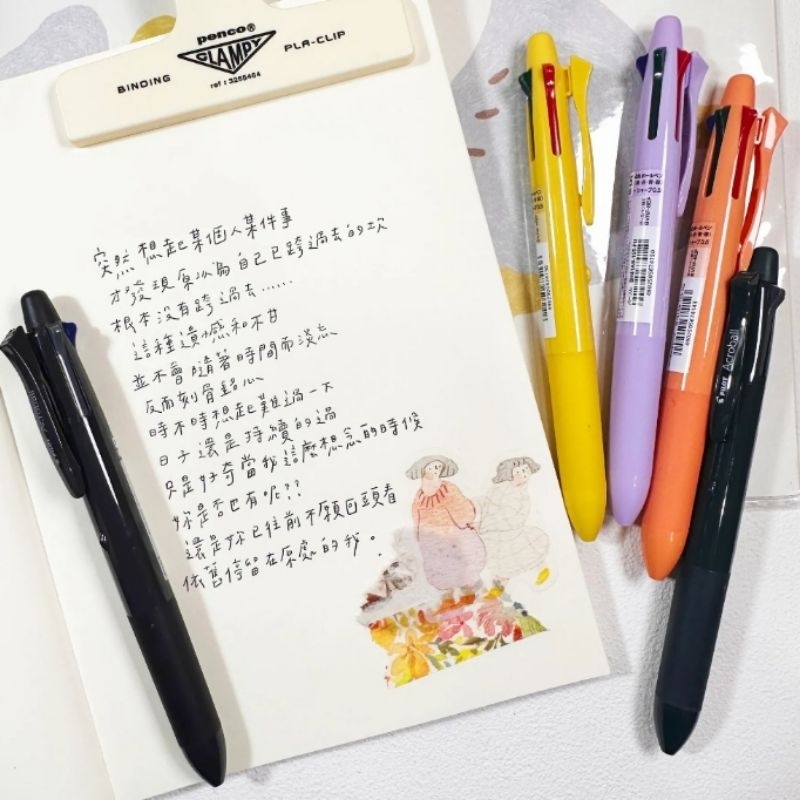 penco®
CLAMPY
BINDING
PLA-CLIP
ref : 3255454
突然想起某個人某件事
才發現原以為自己已跨過去的坎
根本沒有跨過去……
這種遺憾和不甘
並不會隨著時間而淡忘
反而刻骨銘心
時不時想起難過一下
日子還是持續的過
只是好奇當我這麼想念的時候
妳是否也有呢??
還是妳已往前不願回頭看
依舊停留在原處的我。
PILOT Acroball